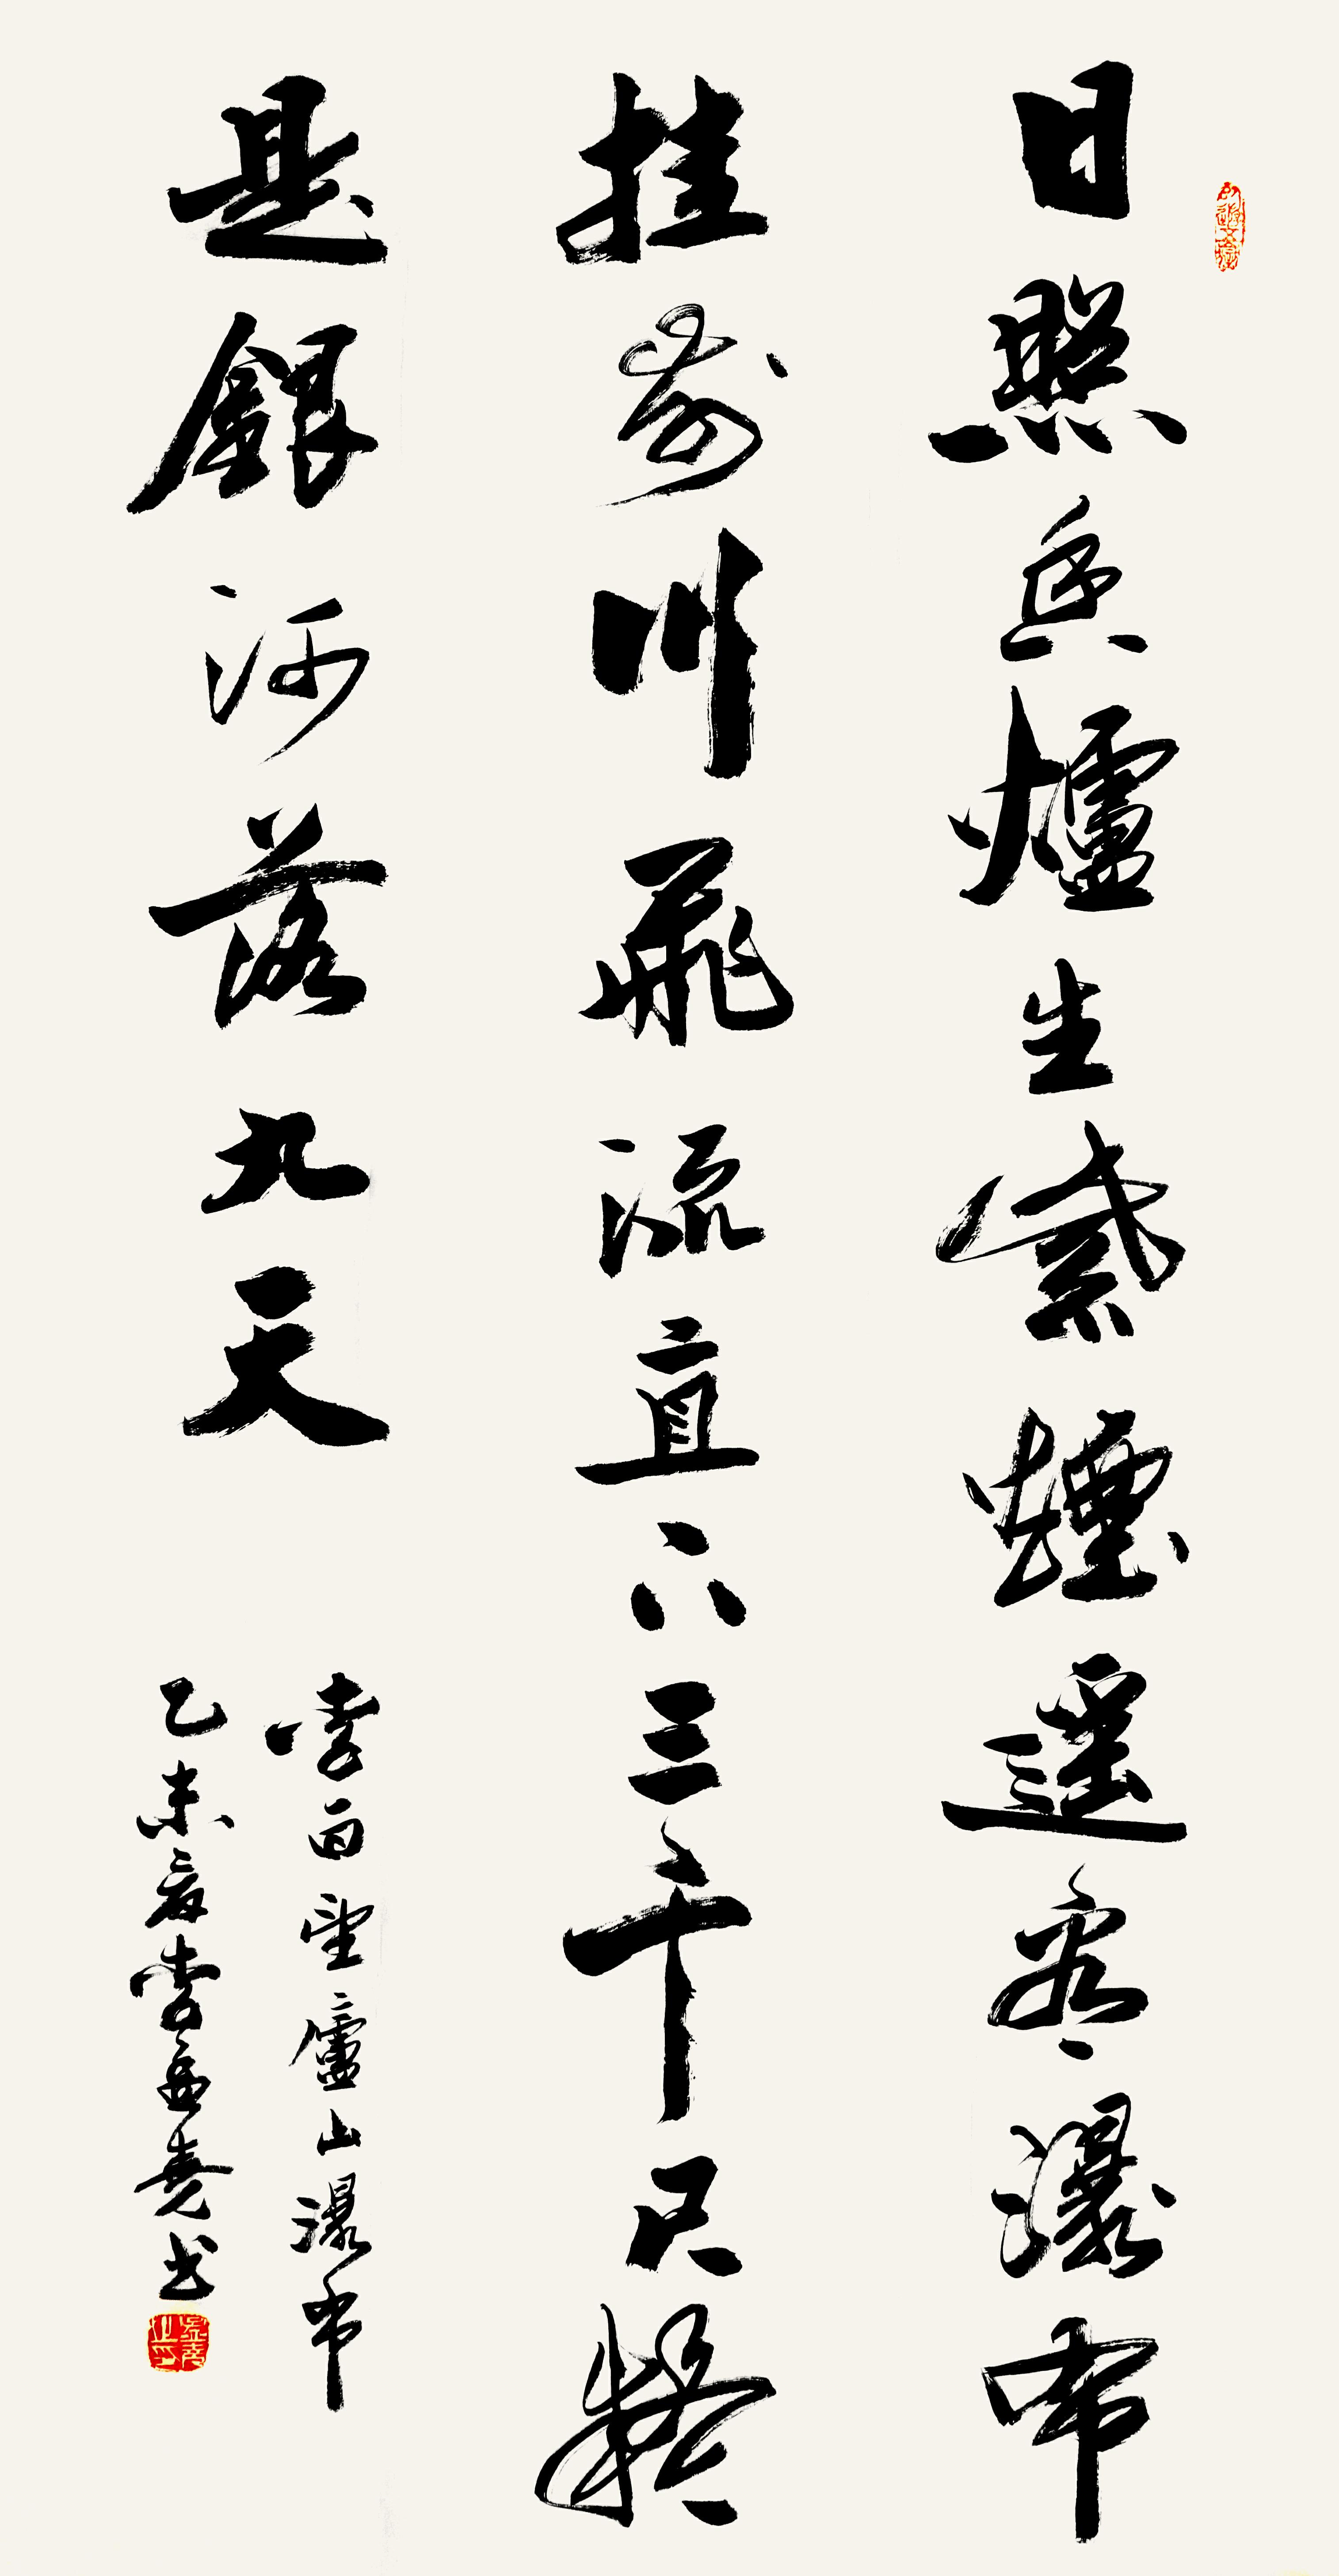 日照香爐生紫煙遙看瀑布
挂前川飛流直下三千尺疑
是銀河落九天
李白望廬山瀑布
乙未夏李孟尧书